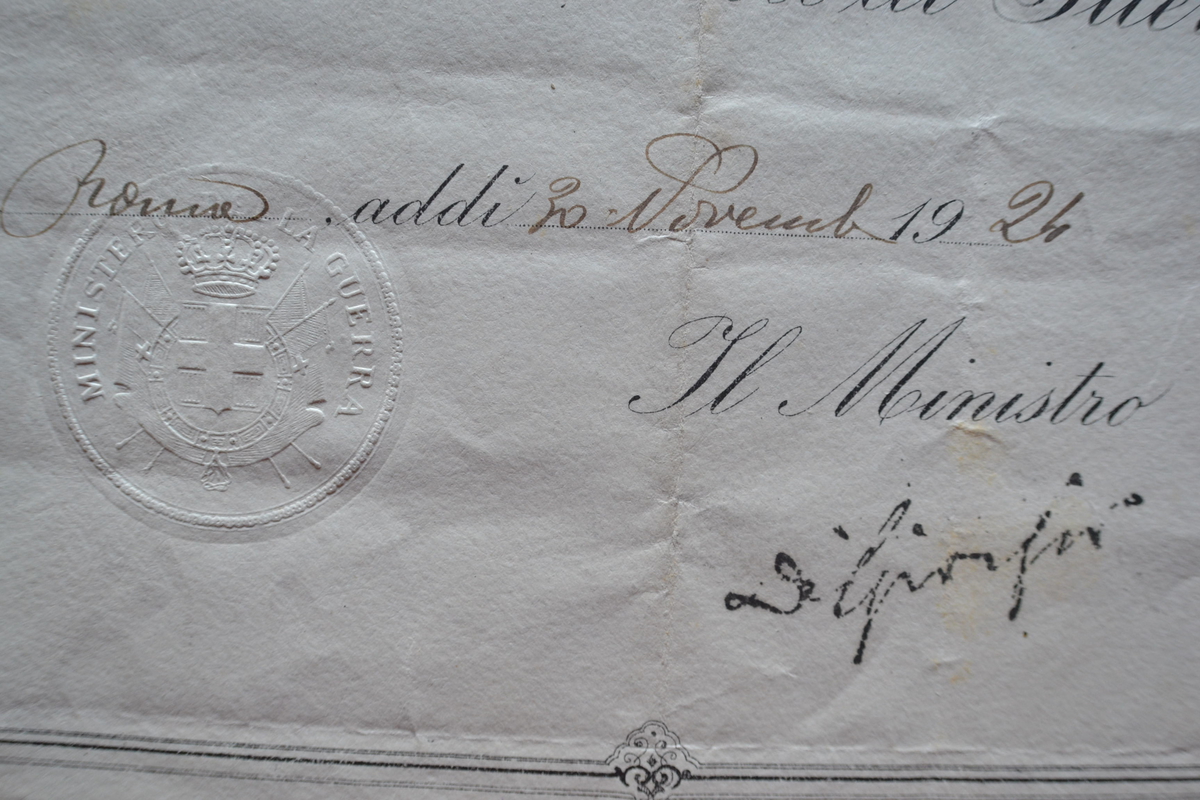 Roma, addì 30 Novemb 1924
MINISTERO DELLA GUERRA
Il Ministro